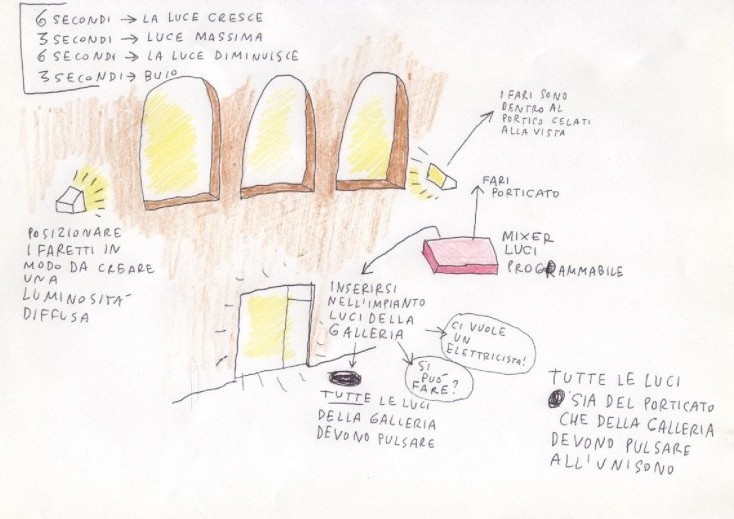 6 SECONDI → LA LUCE CRESCE
3 SECONDI → LUCE MASSIMA
6 SECONDI → LA LUCE DIMINUISCE
3 SECONDI → BUIO
I FARI SONO
DENTRO AL
PORTICO CELATI
ALLA VISTA
FARI
PORTICATO
MIXER
LUCI
PROGRAMMABILE
POSIZIONARE
I FARETTI IN
MODO DA CREARE
UNA
LUMINOSITA'
DIFFUSA
INSERIRSI
NELL'IMPIANTO
LUCI DELLA
GALLERIA
CI VUOLE
UN
ELETTRICISTA!
SI
PUO'
FARE?
TUTTE LE LUCI
DELLA GALLERIA
DEVONO PULSARE
TUTTE LE LUCI
SIA DEL PORTICATO
CHE DELLA GALLERIA
DEVONO PULSARE
ALL'UNISONO